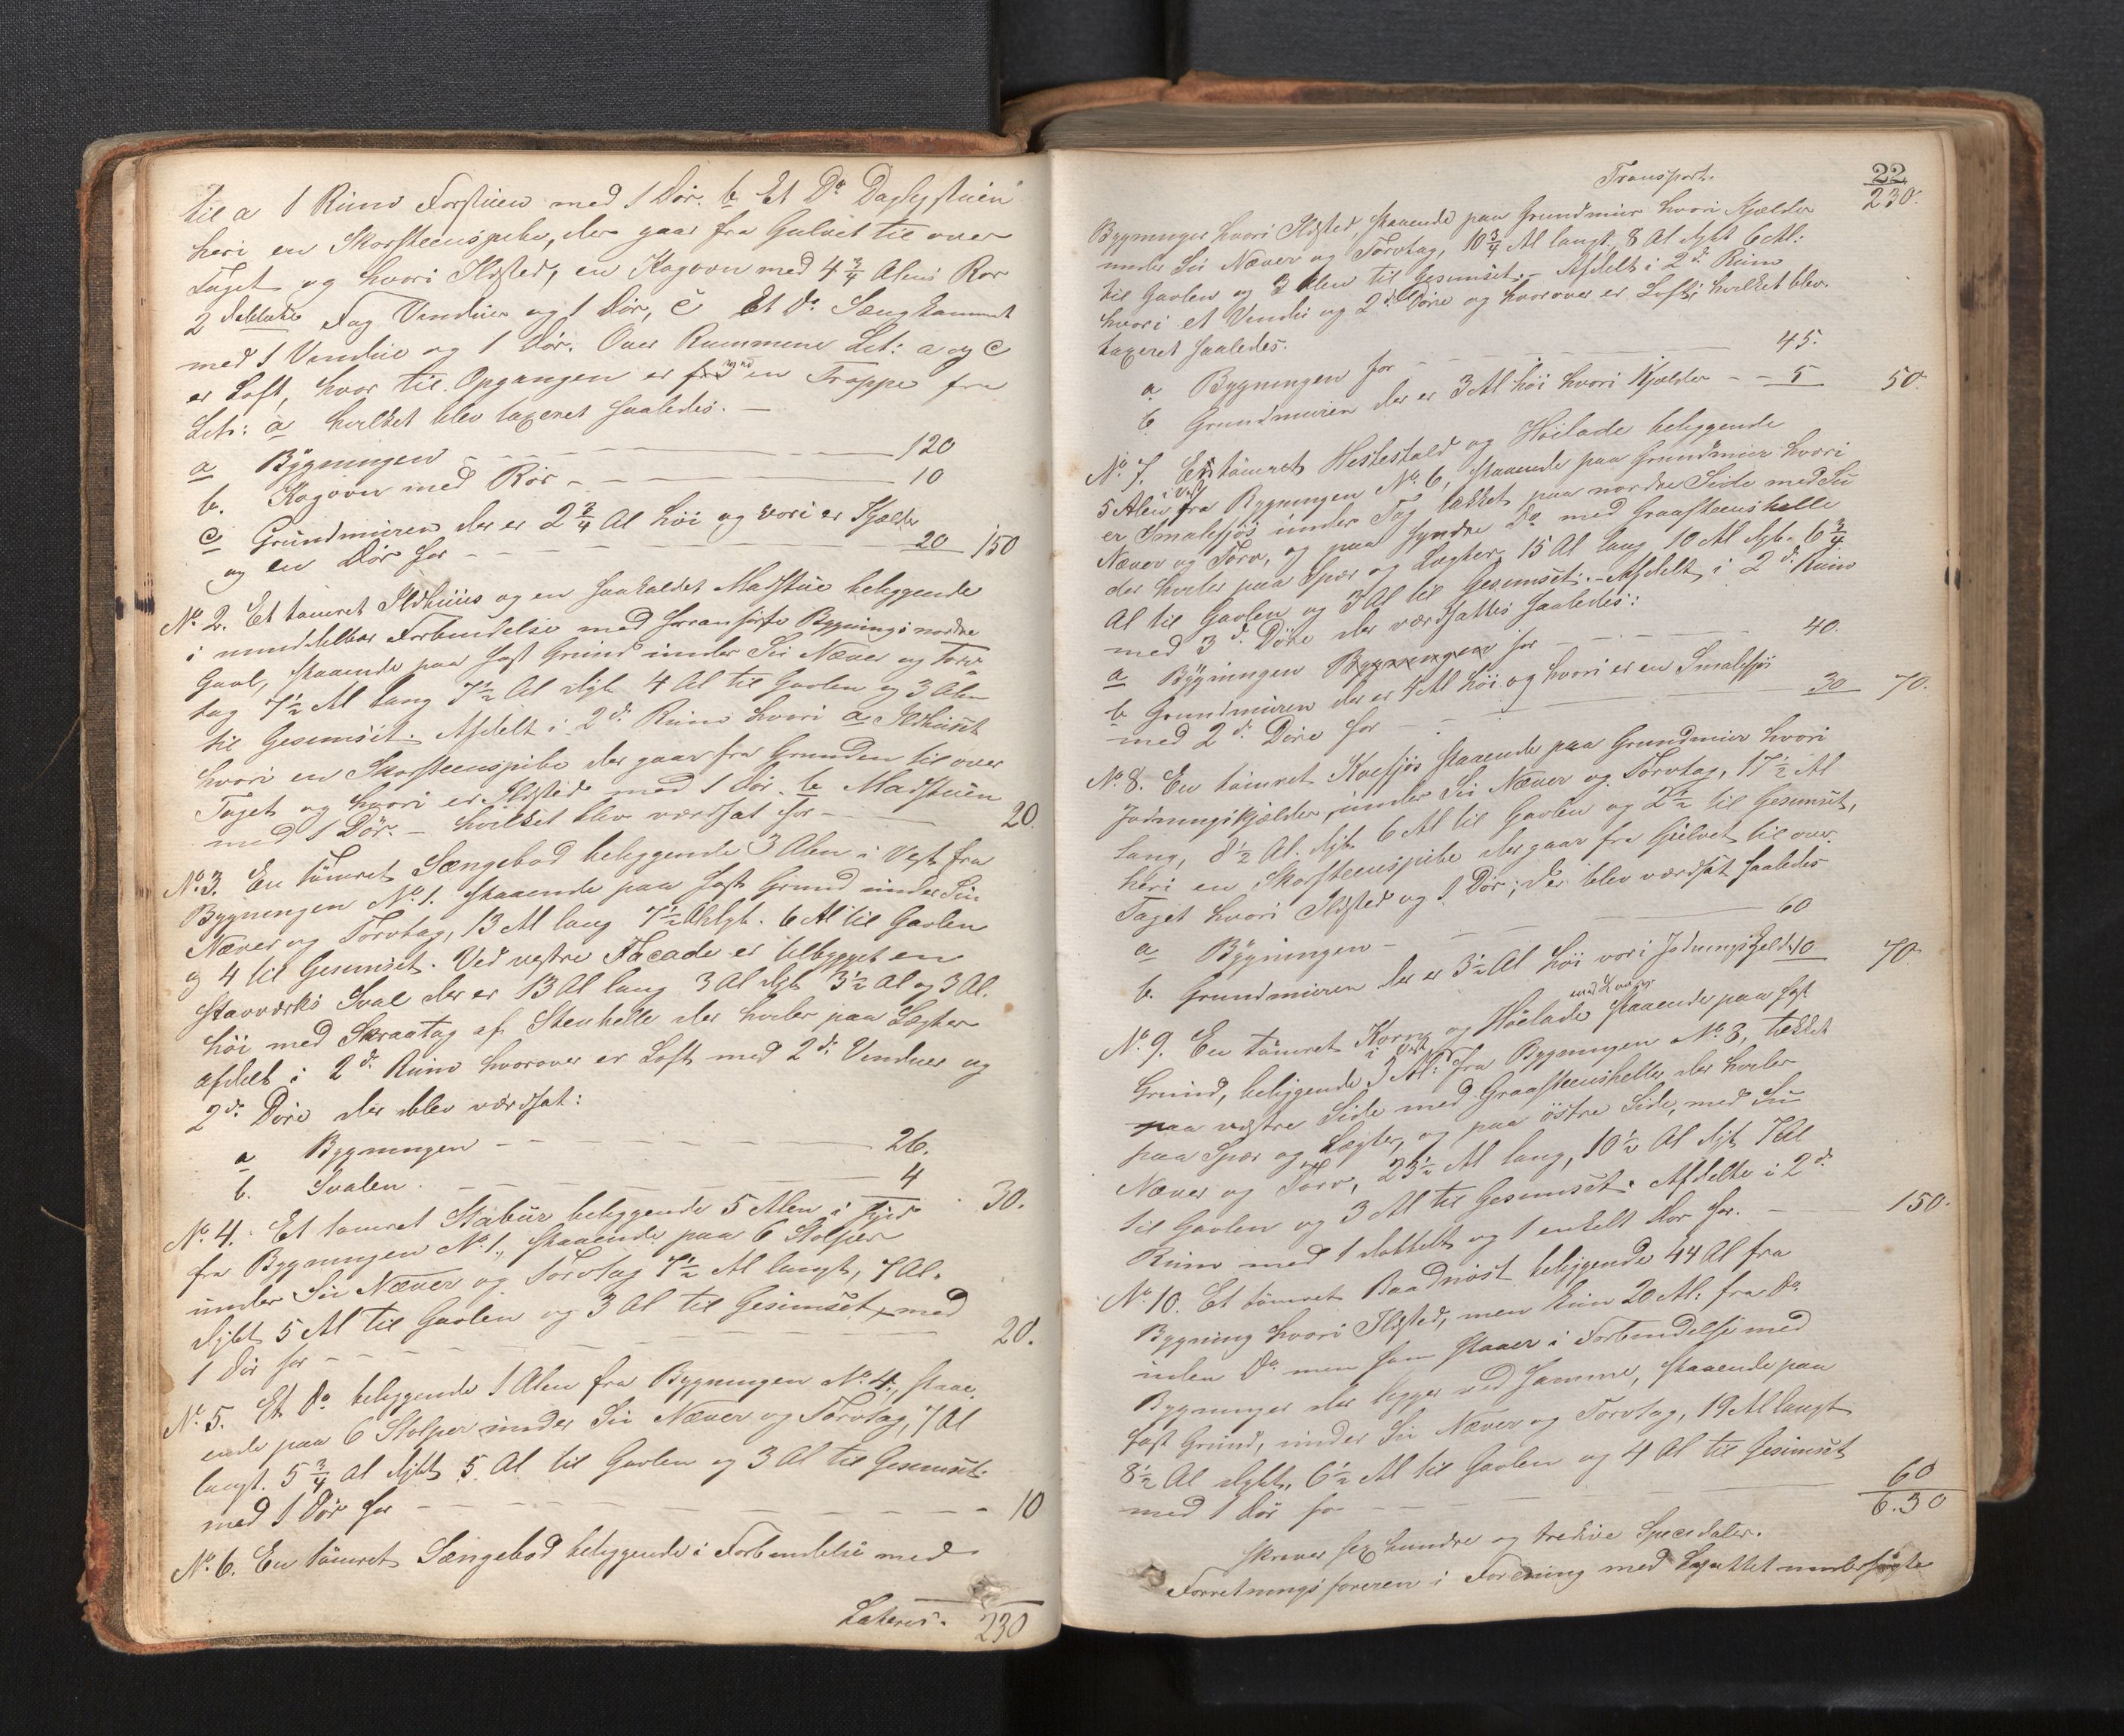 til a 1 Rum Forstuen med 1 Dör. b Et Do Daglystuen
heri en Skorsteenspibe, der gaar fra Gulvet til over
Taget og hvori Ildsted, en Kogovn med 4 3/4 Alens Rör
2 dobbelte Fag Vinduer og 1 Dör, c Et Do Sængkammer
med 1 Vindue og 1 Dör. Over Rummene Lit: a og c
er Loft, hvor til Opgangen er en Trappe fra
Lit: a hvilket blev taxeret saaledes. —
a Bygningen — 120
b. Kogovn med Rör — 10
c Grundmuren der er 2 3/4 Al höi og hvori er Kjelder
og en Dör for — 20 150
No 2. Et tömret Ildhuus og en saakaldet Madstue beliggende
i umiddelbar Forbindelse med foranförte Bygnings nordre
Gavl, staaende paa fast Grund under Su Næver og Torv
tag 7 1/2 Al lang 7 1/2 Al dyb 4 Al til Gavlen og 3 Alen
til Gesimset. Afdelt i 2de Rum hvori a Ildhuset
hvori en Skorsteenspibe der gaar fra Grunden til over
Taget og hvori er Ildsted med 1 Dör. b Madstuen
med 1 Dör. — hvilket blev værdsat for — 20.
No 3. En tömret Sængebod beliggende 3 Alen i Vest fra
Bygningen No 1. staaende paa fast Grund under Su
Næver og Torvtag, 13 Al lang 7 1/2 Al dyb. 6 Al til Gavlen
og 4 til Gesimset. Ved vestre Facade er tilbygget en
Stavværks Sval der er 13 Al lang 3 Al dyb 3 1/2 Al og 3 Al.
höi med Skraatag af Steenhelle der hviler paa Lægter
afdelt i 2de Rum hvorover er Loft med 2de Vinduer og
2de Döre der blev værdsat:
a Bygningen — 26.
b. Svalen. — 4 30.
No 4. Et tömret Stabur beliggende 5 Alen i Syd
fra Bygningen No 1., staaende paa 6 Stolper
under Su Næver og Torvtag 7 1/2 Al langt, 7 Al.
dybt 5 Al til Gavlen og 3 Al til Gesimset, med
1 Dör for — 20.
No 5. Et Do beliggende 1 Alen fra Bygningen No 4., staa
ende paa 6 Stolper under Su Næver og Torvtag, 7 Al
langt. 5 3/4 Al dybt 5 Al til Gavlen og 3 Al til Gesimset.
med 1 Dör for — 10
No 6. En tömret Sængebod beliggende i Forbindelse med
Lateris. 230
22
Transport. 230.
Bygninger hvori Ildsted, staaende paa Grundmur hvori Kjælder
under Su Næver og Torvtag, 10 3/4 Al langt, 8 Al dybt 6 Al:
til Gavlen og 3 Alen til Gesimset. — Afdelt i 2de Rum
hvori et Vindu og 2de Döre og hvorover er Loft; hvilket blev
taxeret saaledes.
a Bygningen for — 45.
b Grundmuren der er 3 Al höi hvori Kjælder — 5 50.
No 7. En tömret Hestestald og Höilade beliggende
5 Alen i Vest fra Bygningen No 6, staaende paa Grundmur hvori
er Smalefjös under Tag tækket paa nordre Side med Su
Næver og Torv, og paa syndre Do med Graasteenshelle
der hviler paa Spær og Lægter, 15 Al lang 10 Al dyb. 6 3/4
Al til Gavlen og 3 Al til Gesimset. — Afdelt i 2de Rum
med 3de Döre der værdsattes saaledes:
a Bygningen Bygningen for — 40.
b Grundmuren der er 4 Al höi og hvori er en Smalefjös
med 2de Döre for — 30 70.
No 8. En tömret Koefjös staaende paa Grundmur hvori
Jodningskjælder, under Su Næver og Torvtag, 17 1/2 Al
lang, 8 1/2 Al. dyb 6 Al til Gavlen og 2 1/2 til Gesimset,
heri en Skorsteenspibe der gaar fra Gulvet til over
Taget hvori Ildsted og 1 Dör; der blev værdsat saaledes
a Bygningen — 60
b. Grundmuren der er 3 1/2 Al höi vori Jodningskjelder 10 70
No 9. En tömret Korn og Höelade staaende paa fast
Grund, beliggende 3 Al: i Vest fra Bygningen No 3, tækket
paa vestre Side med Graasteenshelle, der hviler
paa Spær og Lægter, og paa östre Side, med Su
Næver og Torv, 23 1/2 Al lang, 10 1/2 Al dyb 7 Al
til Gavlen og 3 Al til Gesimset. Afdelte i 2de
Rum med 1 dobbelt og 1 enkelt Dör for. — 150.
No 10. Et tömret Baadnöst beliggende 44 Al fra
Bygning hvori Ildsted, men kun 20 Al: fra Do
uden Do men som staaer i Forbindelse med
Bygninger der ligger ved samme, staaende paa
fast Grund, under Su Næver og Torvtag, 19 Al langt
8 1/2 Al dybt, 6 1/2 Al til Gavlen og 4 Al til Gesimset
med 1 Dör for — 60
6.30
skriver sex hundre og tredive Speciedaler.
Forretningsföreren i Forening med Lagrettet undersögte